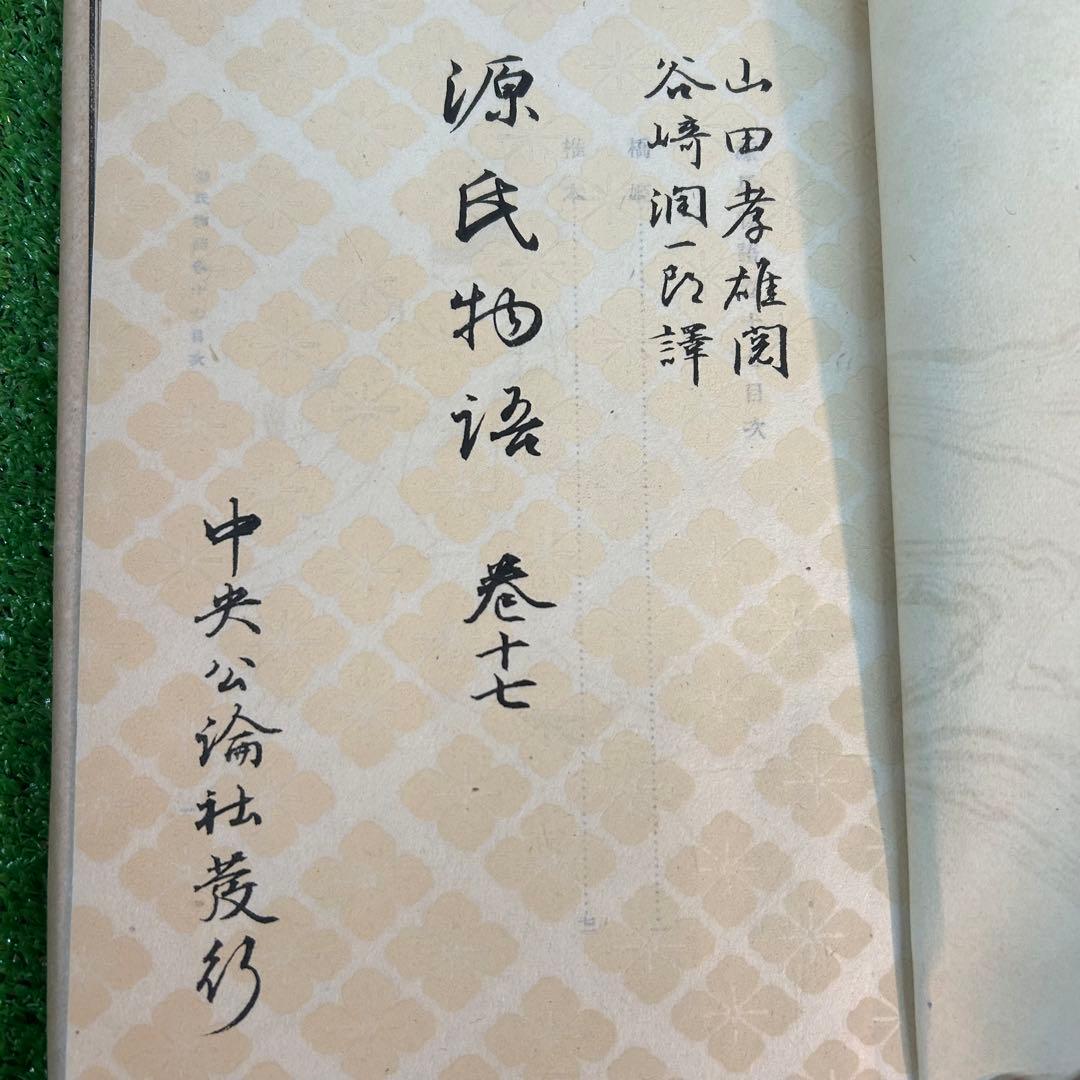 山田孝雄閲
谷崎潤一郎譯
源氏物語 巻十七
中央公論社發行
目次
橋姫
椎本